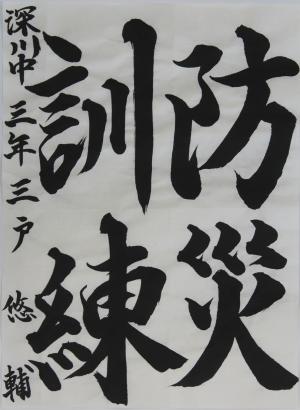 防災
訓練
深川中 三年 三戸 悠輔